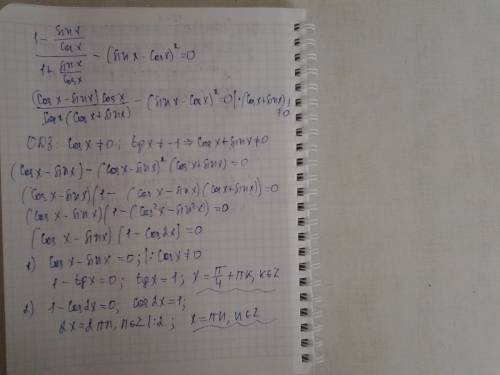 (1 - sinx/cosx)/(1 + sinx/cosx) - (sinx - cosx)² = 0
(cosx - sinx)cosx/(cosx(cosx + sinx)) - (sinx - cosx)² = 0 |·(cosx + sinx) ≠ 0
ОДЗ: cosx ≠ 0; tgx ≠ -1 ⇒ cosx + sinx ≠ 0
(cosx - sinx) - (cosx - sinx)²(cosx + sinx) = 0
(cosx - sinx)(1 - (cosx - sinx)(cosx + sinx)) = 0
(cosx - sinx)(1 - (cos²x - sin²x)) = 0
(cosx - sinx)(1 - cos2x) = 0
1) cosx - sinx = 0; |: cosx ≠ 0
1 - tgx = 0; tgx = 1; x = π/4 + πk, k∈Z
2) 1 - cos2x = 0; cos2x = 1;
2x = 2πn, n∈Z |:2; x = πn, n∈Z